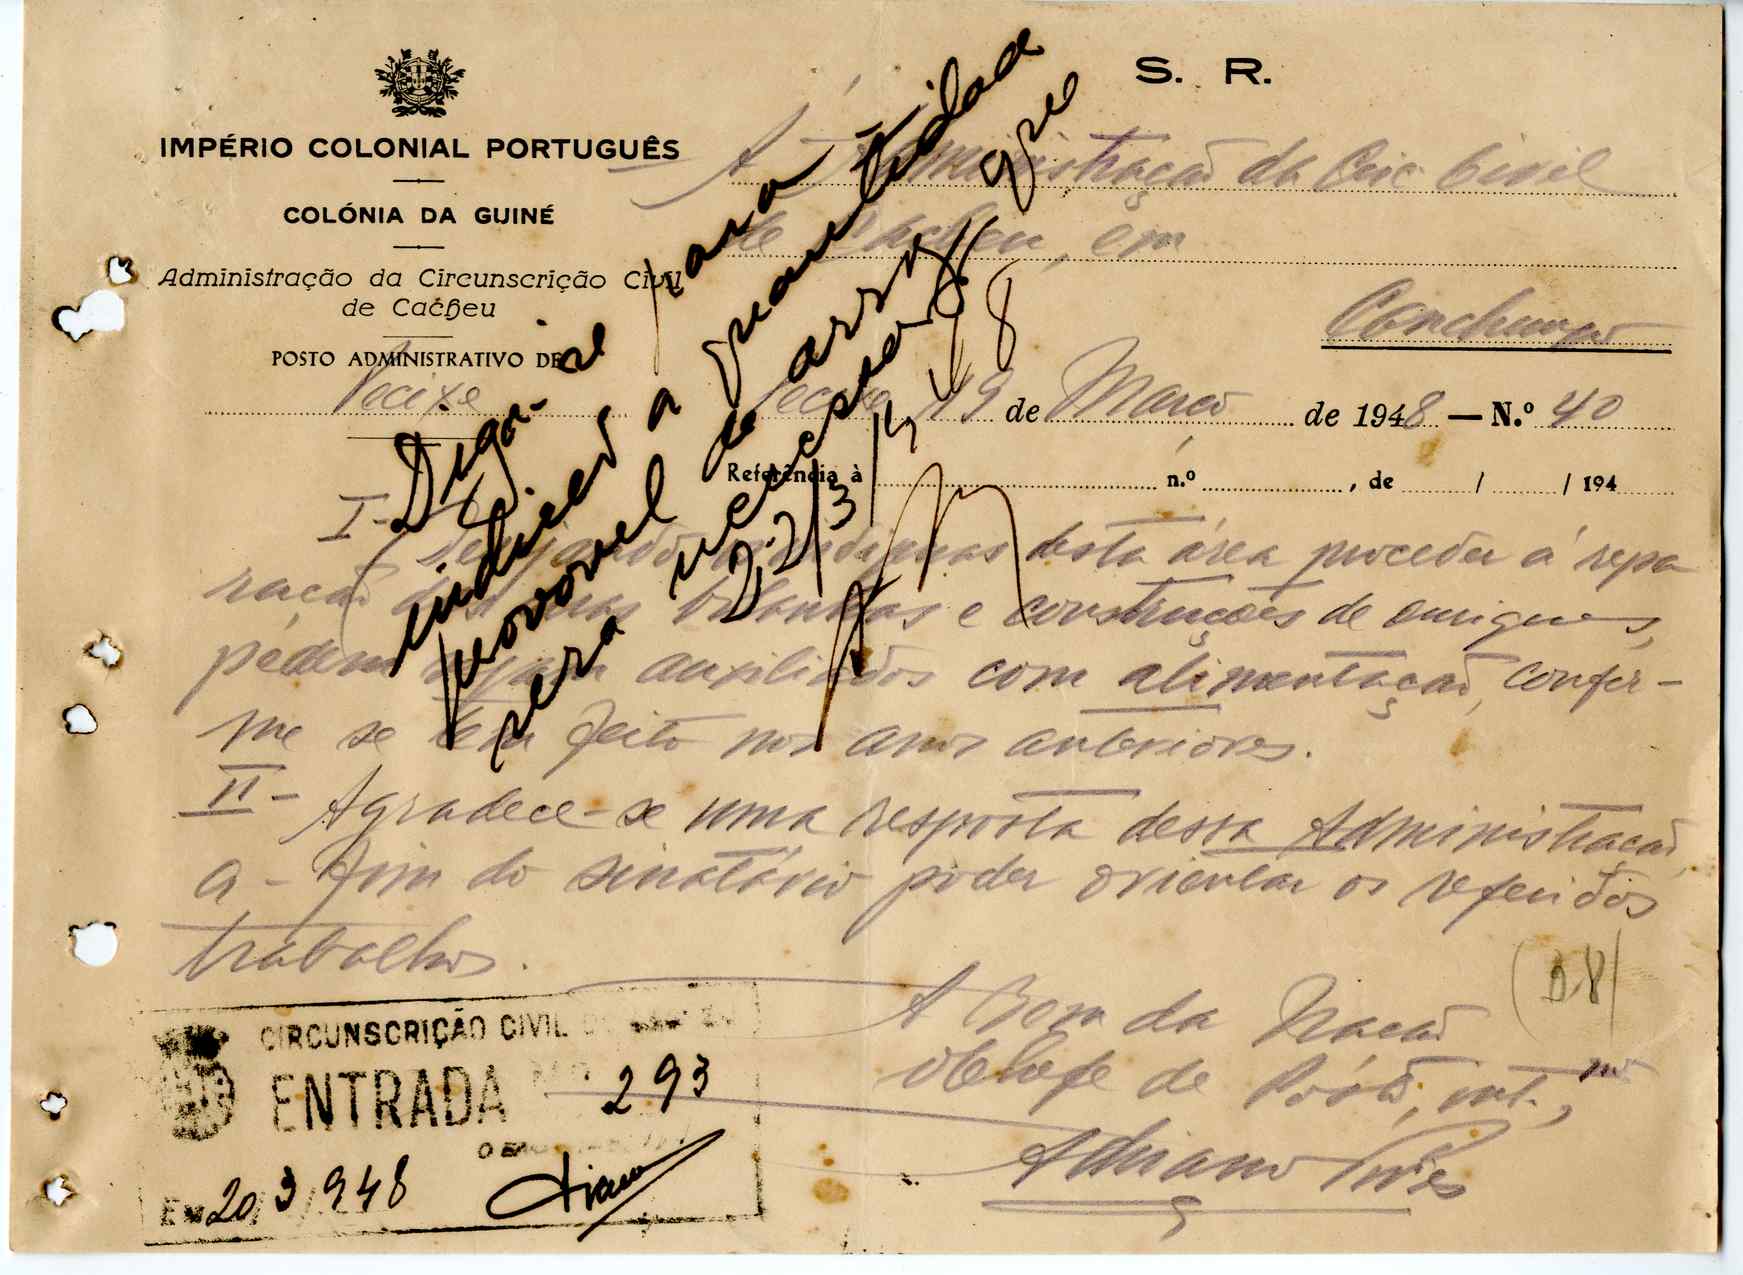 S. R.
IMPÉRIO COLONIAL PORTUGUÊS
COLÓNIA DA GUINÉ
Administração da Circunscrição Civil
de Cacheu
POSTO ADMINISTRATIVO DE
Pecixe
À Administração da Circ. Civil
de Cacheu, em
Canchungo
Pecixe 19 de Março de 1948 — N.º 40
Referência à n.º , de / / 194
I-
Desejando os indígenas desta área proceder á repa
ração das suas bolanhas e construções de ouriques,
pedem sejam auxiliados com alimentação, confor-
me se tem feito nos anos anteriores.
II - Agradece-se uma resposta dessa Administração
a-fim do sinatário poder orientar os referidos
trabalhos.
A Bem da Nação
O Chefe de Posto, int.,
Adriano Pires
(D.8)
Diga-se para
indicar a quantidade
provavel de arroz que
sera necessario
22/3/948
CIRCUNSCRIÇÃO CIVIL
ENTRADA Nº 293
Em 20/3/948